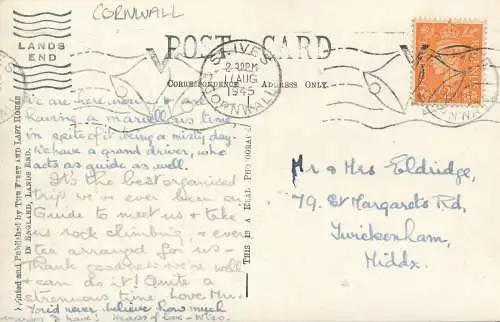 CORNWALL
LANDS
END
POST CARD
ST. IVES
2-30PM
17 AUG
1945
CORNWALL
CORRESPONDENCE ADDRESS ONLY.
Printed and Published by THE FIRST AND LAST HOUSE
IN ENGLAND, LANDS END.
THIS IS A REAL PHOTOGRAPH
We are here now
having a marvellous time,
in spite of it being a misty day.
We have a grand driver, who
acts as guide as well.
It's the best organised
trip, we've ever been on.
Guide to meet us & take
us rock climbing, & even
tea arranged for us -
Thank goodness we're well
& can do it! Quite a
strenuous time. Love
You'd never believe how much
to have!
Mr & Mrs Eldridge,
79, St Margarets Rd,
Twickenham,
Middx.